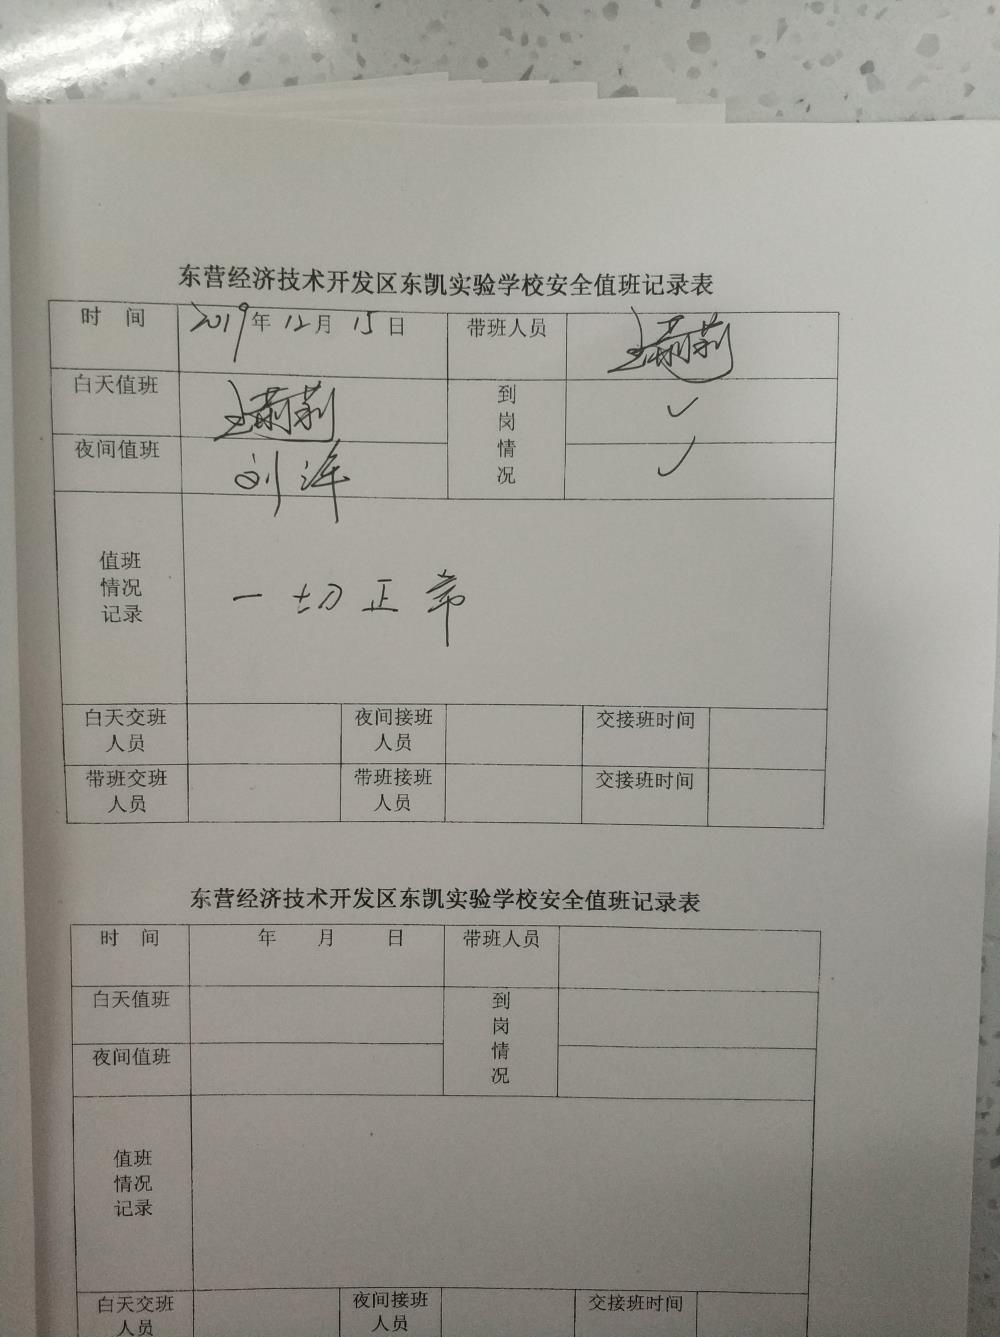 东营经济技术开发区东凯实验学校安全值班记录表
时 间 2019年 12月 15日 带班人员
白天值班 到岗情况 ✓
夜间值班 刘洋 ✓
值班情况记录 一切正常
白天交班人员 夜间接班人员 交接班时间
带班交班人员 带班接班人员 交接班时间
东营经济技术开发区东凯实验学校安全值班记录表
时 间 年 月 日 带班人员
白天值班 到岗情况
夜间值班
值班情况记录
白天交班人员 夜间接班人员 交接班时间